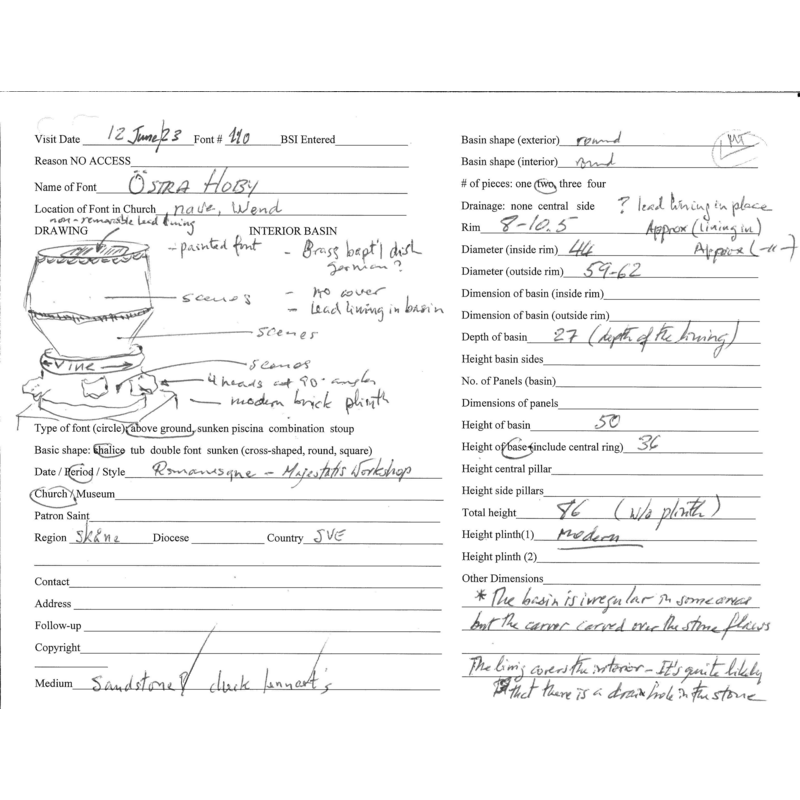 Visit Date 12 June/23 Font # 110 BSI Entered
Reason NO ACCESS
Name of Font ÖSTRA HOBY
Location of Font in Church nave, W end
non-removable lead lining
DRAWING INTERIOR BASIN
- painted font
- Brass bapt'l dish
german?
scenes
- no cover
- lead lining in basin
scenes
VINE
scenes
4 heads at 90° angles
modern brick plinth
Type of font (circle) above ground, sunken piscina combination stoup
Basic shape: chalice tub double font sunken (cross-shaped, round, square)
Date / Period / Style Romanesque - Majestatis Workshop
Church / Museum
Patron Saint
Region Skåne Diocese Country SVE
Contact
Address
Follow-up
Copyright
Medium Sandstone? check Lennart's
Basin shape (exterior) round
Basin shape (interior) round
# of pieces: one two, three four
Drainage: none central side ? lead lining in place
Rim 8-10.5 Approx (lining in)
Diameter (inside rim) 44 Approx (-"-)
Diameter (outside rim) 59-62
Dimension of basin (inside rim)
Dimension of basin (outside rim)
Depth of basin 27 (depth of the lining)
Height basin sides
No. of Panels (basin)
Dimensions of panels
Height of basin 50
Height of base (include central ring) 36
Height central pillar
Height side pillars
Total height 86 (w/o plinth)
Height plinth(1) modern
Height plinth (2)
Other Dimensions
* The basin is irregular in some areas
but the carver carved over the stone flaws
The lining covers the interior - It's quite likely
that there is a drain hole in the stone